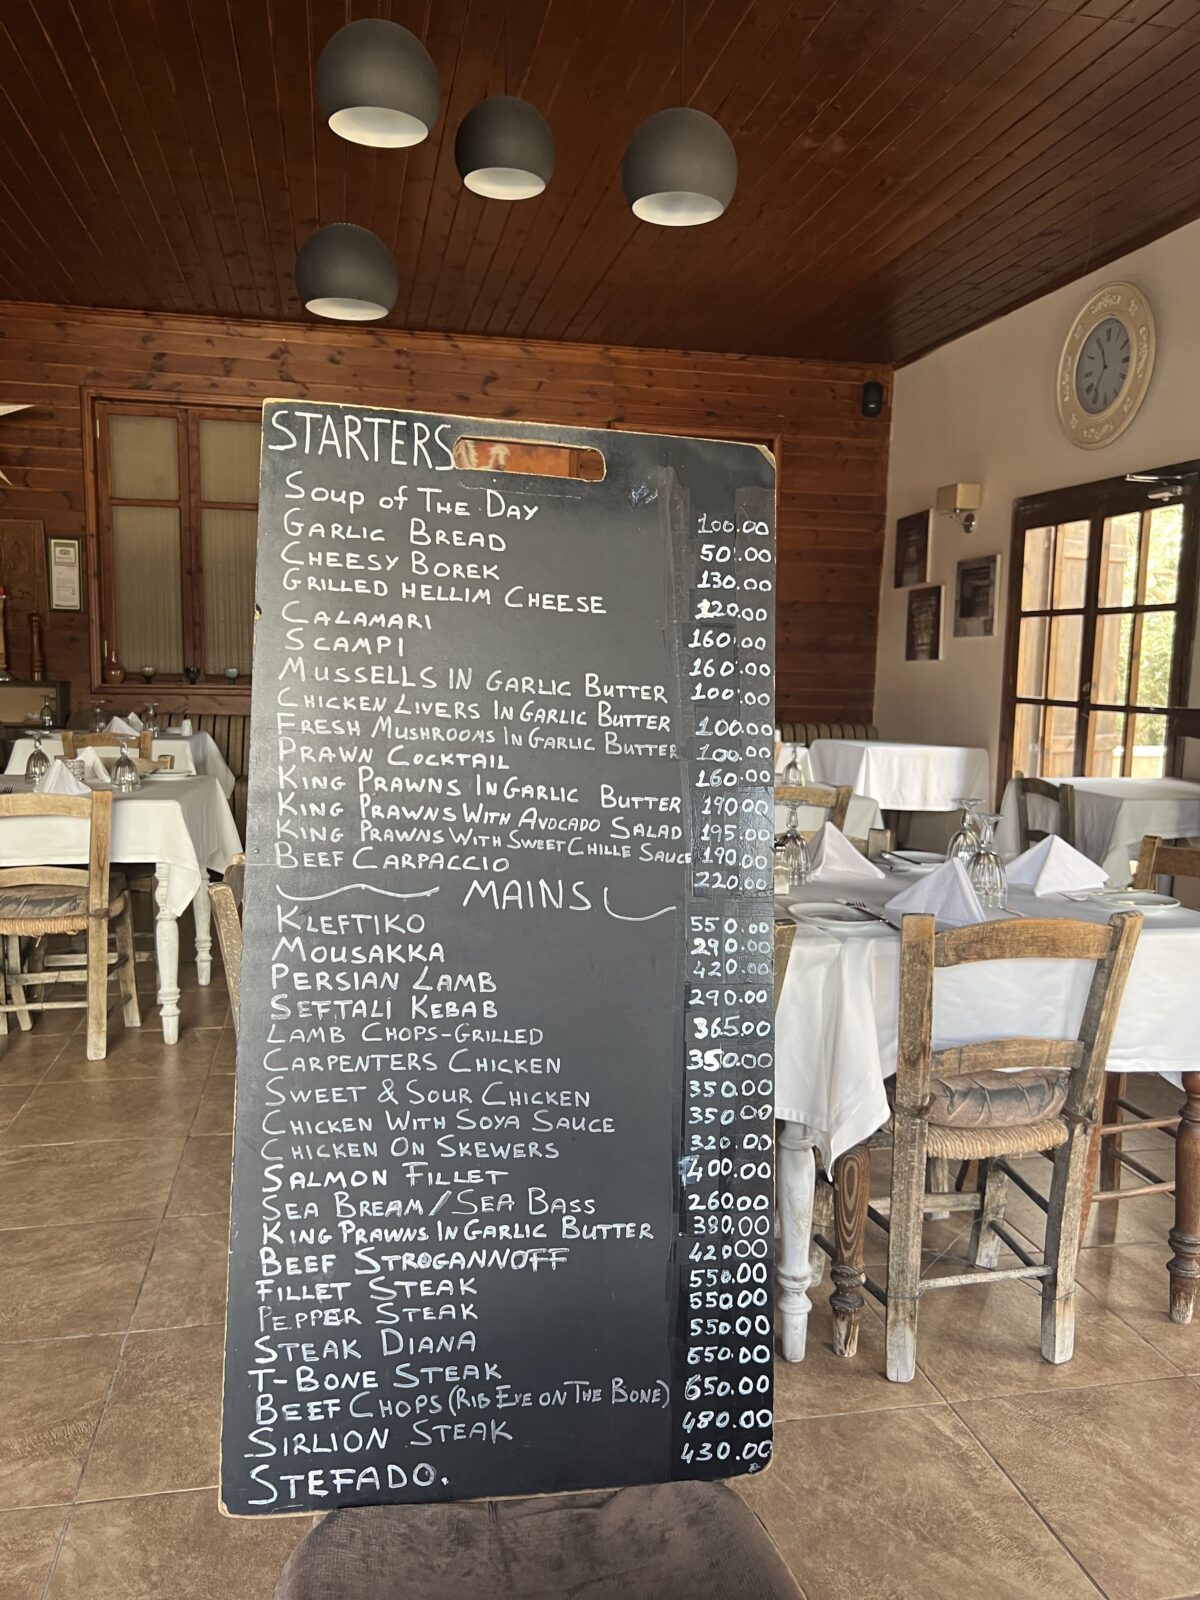 STARTERS
SOUP OF THE DAY 100.00
GARLIC BREAD 50.00
CHEESY BOREK 130.00
GRILLED HELLIM CHEESE 120.00
CALAMARI 160.00
SCAMPI 160.00
MUSSELLS IN GARLIC BUTTER 100.00
CHICKEN LIVERS IN GARLIC BUTTER 100.00
FRESH MUSHROOMS IN GARLIC BUTTER 100.00
PRAWN COCKTAIL 160.00
KING PRAWNS IN GARLIC BUTTER 190.00
KING PRAWNS WITH AVOCADO SALAD 195.00
KING PRAWNS WITH SWEET CHILLE SAUCE 190.00
BEEF CARPACCIO 220.00
MAINS
KLEFTIKO 550.00
MOUSAKKA 290.00
PERSIAN LAMB 420.00
SEFTALI KEBAB 290.00
LAMB CHOPS-GRILLED 365.00
CARPENTERS CHICKEN 350.00
SWEET & SOUR CHICKEN 350.00
CHICKEN WITH SOYA SAUCE 350.00
CHICKEN ON SKEWERS 320.00
SALMON FILLET 400.00
SEA BREAM/SEA BASS 260.00
KING PRAWNS IN GARLIC BUTTER 380.00
BEEF STROGANNOFF 420.00
FILLET STEAK 550.00
PEPPER STEAK 550.00
STEAK DIANA 550.00
T-BONE STEAK 650.00
BEEF CHOPS (RIB EYE ON THE BONE) 650.00
SIRLION STEAK 480.00
STEFADO. 430.00